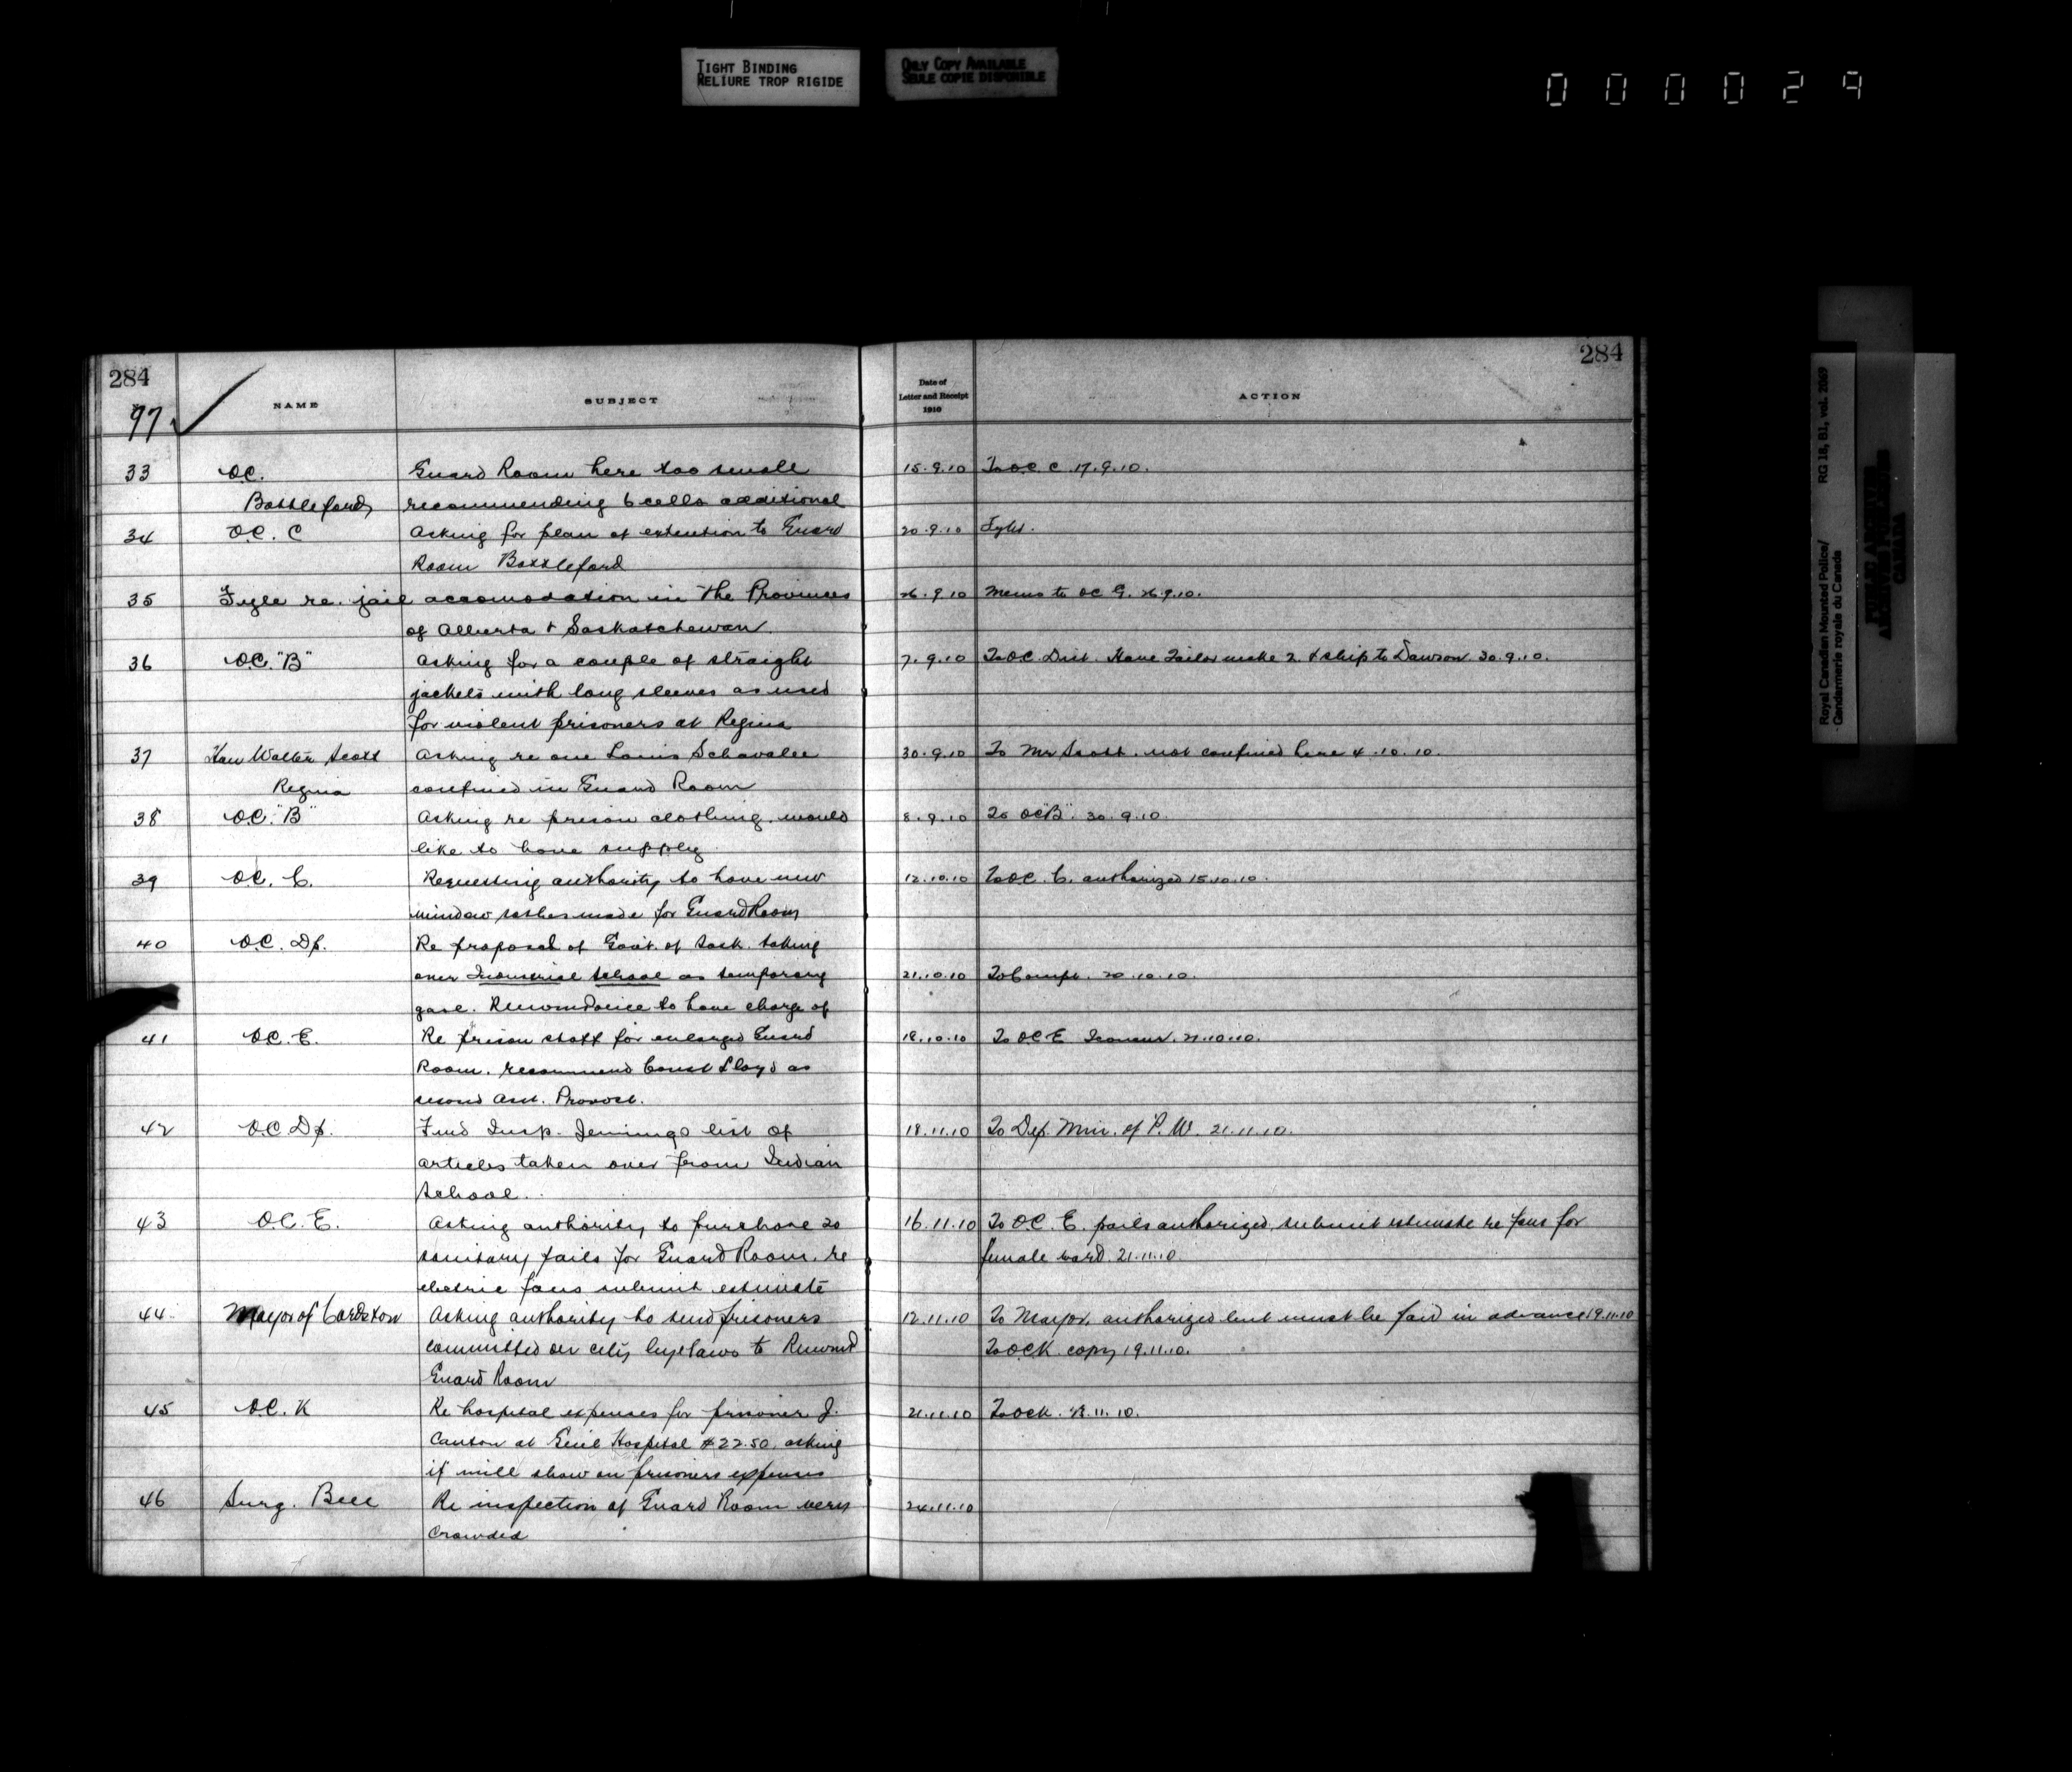 TIGHT BINDING
RELIURE TROP RIGIDE
ONLY COPY AVAILABLE
SEULE COPIE DISPONIBLE
000029
284
97
NAME
SUBJECT
Date of
Letter and Receipt
1910
ACTION
284
33 O.C. Guard Room here too small 15.9.10 To O.C. C. 17.9.10.
Battleford recommending 6 cells additional
34 O.C. C Asking for plan of extention to Guard 20.9.10
Room Battleford
35 Fyle re. jail accomodation in the Provinces 26.9.10 Memo to OC G. 26.9.10.
of Alberta & Saskatchewan.
36 O.C. "B" Asking for a couple of straight 7.9.10 To O.C. Dist. Have Tailor make 2 & ship to Dawson 30.9.10.
jackets with long sleeves as used
for violent prisoners at Regina
37 Hon Walter Scott Asking re one Louis Schavalee 30.9.10 To Mr Scott. not confined here 4.10.10.
Regina confined in Guard Room
38 O.C. "B" Asking re prison clothing. would 8.9.10 To OC "B". 30.9.10.
like to have supply
39 O.C. C. Requesting authority to have new 12.10.10 To O.C. C. authorized 15.10.10.
window sashes made for Guard Room
40 O.C. Dp. Re proposal of Govt. of Sask. taking
over Industrial School as temporary 21.10.10 To Compt. 20.10.10.
gaol. R.N.W.M. Police to have charge of
41 O.C. E. Re prison staff for enlarged Guard 18.10.10 To O.C. E 21.10.10.
Room. recommend Const Lloyd as
second Asst. Provost.
42 O.C. Dp. Fwd Insp. Jennings list of 18.11.10 To Dep. Min. of P.W. 21.11.10.
articles taken over from Indian
School.
43 O.C. E. Asking authority to purchase 20 16.11.10 To O.C. E. pails authorized, submit estimate re fans for
sanitary pails for Guard Room. re female ward. 21.11.10
electric fans submit estimate
44 Mayor of Cardston Asking authority to send prisoners 12.11.10 To Mayor, authorized but must be paid in advance 19.11.10
committed under city byelaws to R.N.W.M.P To O.C. K copy 19.11.10.
Guard Room
45 O.C. K Re hospital expenses for prisoner J. 21.11.10 To OCK. 11.10.
Canton at Genl Hospital $22.50, asking
if will show on prisoners expenses
46 Surg. Bell Re inspection of Guard Room very 24.11.10
crowded
Royal Canadian Mounted Police/ RG 18, B1, vol. 2069
Gendarmerie royale du Canada
PUBLIC ARCHIVES
ARCHIVES PUBLIQUES
CANADA